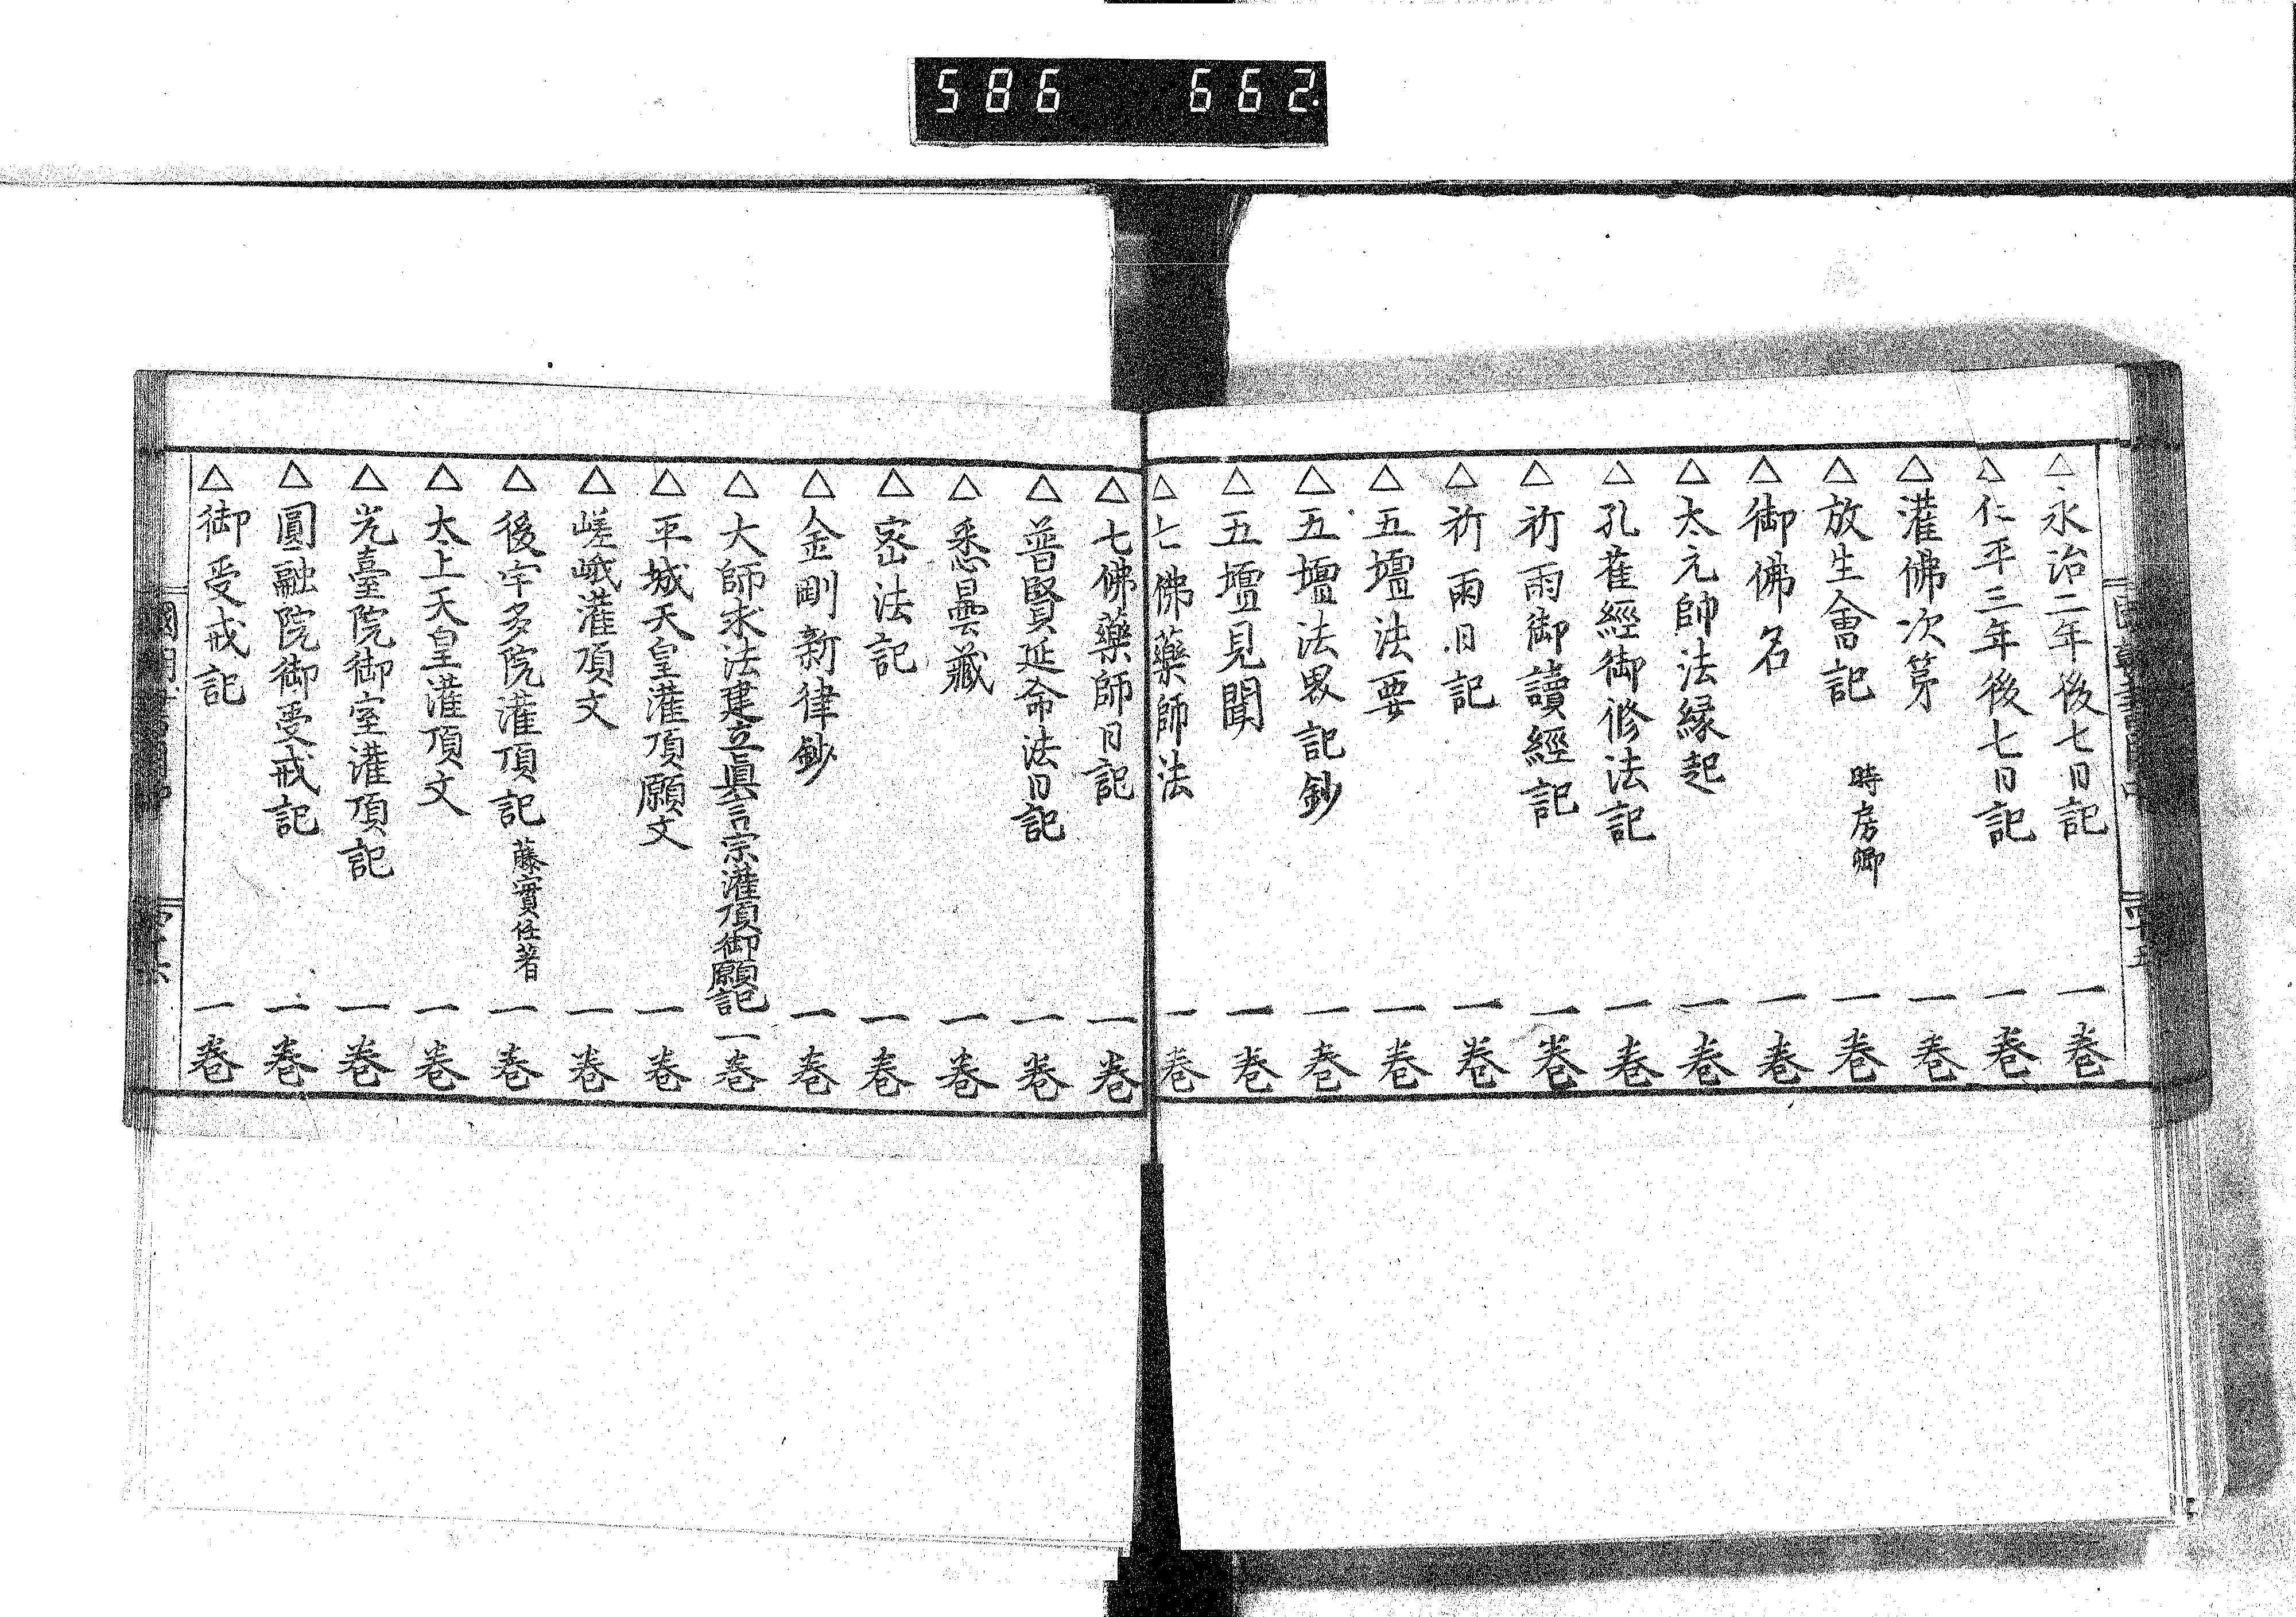 586 662.
△永治二年後七日記 一卷
△仁平三年後七日記 一卷
△灌佛次第 一卷
△放生會記 時房卿 一卷
△御佛名 一卷
△太元帥法緣起 一卷
△孔雀經御修法記 一卷
△祈雨御讀經記 一卷
△祈雨日記 一卷
△五壇法要 一卷
△五壇法畧記鈔 一卷
△五壇見聞 一卷
△七佛藥師法 一卷
△七佛藥師日記 一卷
△普賢延命法日記 一卷
△悉曇藏 一卷
△密法記 一卷
△金剛新律鈔 一卷
△大師求法建立眞言宗灌頂御願記 一卷
△平城天皇灌頂願文 一卷
△嵯峨灌頂文 一卷
△後宇多院灌頂記 藤實任著 一卷
△太上天皇灌頂文 一卷
△光臺院御室灌頂記 一卷
△圓融院御受戒記 一卷
△御受戒記 一卷